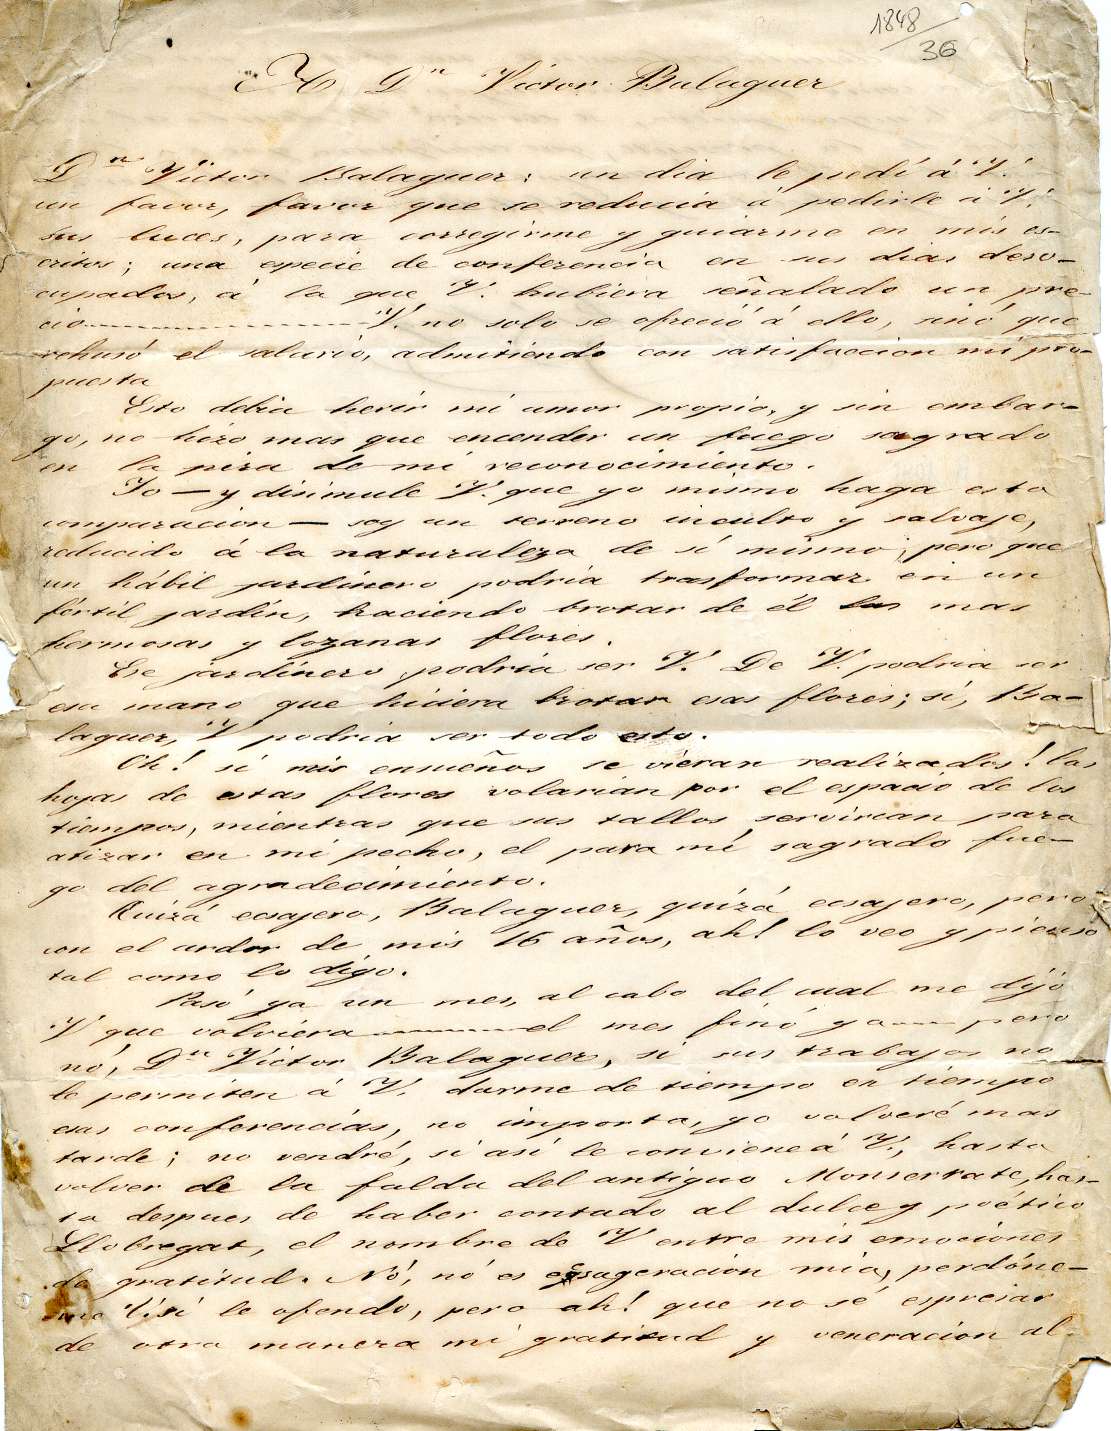 1848/36
A Dn Victor Balaguer
Dn Victor Balaguer: un dia le pedí á V.
un favor, favor que se reducia á pedirle á V.
sus luces, para corregirme y guiarme en mis es-
critos; una especie de conferencia en sus dias deso-
cupados, á la que V. hubiera señalado un pre-
cio................V. no solo se ofreció á ello, sinó que
rehusó el salario, admitiendo con satisfaccion mi pro-
puesta
Esto debia herir mi amor propio, y sin embar-
go, no hizo mas que encender un fuego sagrado
en la pira de mi reconocimiento.
Yo — y disimule V. que yo mismo haga esta
comparacion — soy un terreno inculto y salvaje,
reducido á la naturaleza de sí mismo; pero que
un hábil jardinero podria trasformar en un
fértil jardin, haciendo brotar de él las mas
hermosas y lozanas flores.
Ese jardinero podria ser V. De V. podria ser
esa mano que hiciera brotar esas flores; sí, Ba-
laguer, V podria ser todo esto.
Oh! si mis ensueños se vieran realizados! las
hojas de estas flores volarian por el espacio de los
tiempos, mientras que sus tallos servirian para
atizar en mi pecho, el para mí sagrado fue-
go del agradecimiento.
Quizá ecsajero, Balaguer, quizá ecsajero, pero
con el ardor de mis 16 años, ah! lo veo y pienso
tal como lo digo.
Pasó ya un mes, al cabo del cual me dijo
V que volviera..........el mes finó ya.... pero
nó, Dn Victor Balaguer, si sus trabajos no
le permiten á V. darme de tiempo en tiempo
esas conferencias, no importa, yo volveré mas
tarde; no vendré, si así le conviene á V., hasta
volver de la falda del antiguo Monserrate, has-
ta despues de haber contado al dulce y poético
Llobregat, el nombre de V entre mis emociones
de gratitud. Nó, nó es ecsageracion mia, perdóne-
me V. si le ofendo, pero ah! que no sé espresar
de otra manera mi gratitud y veneracion al-